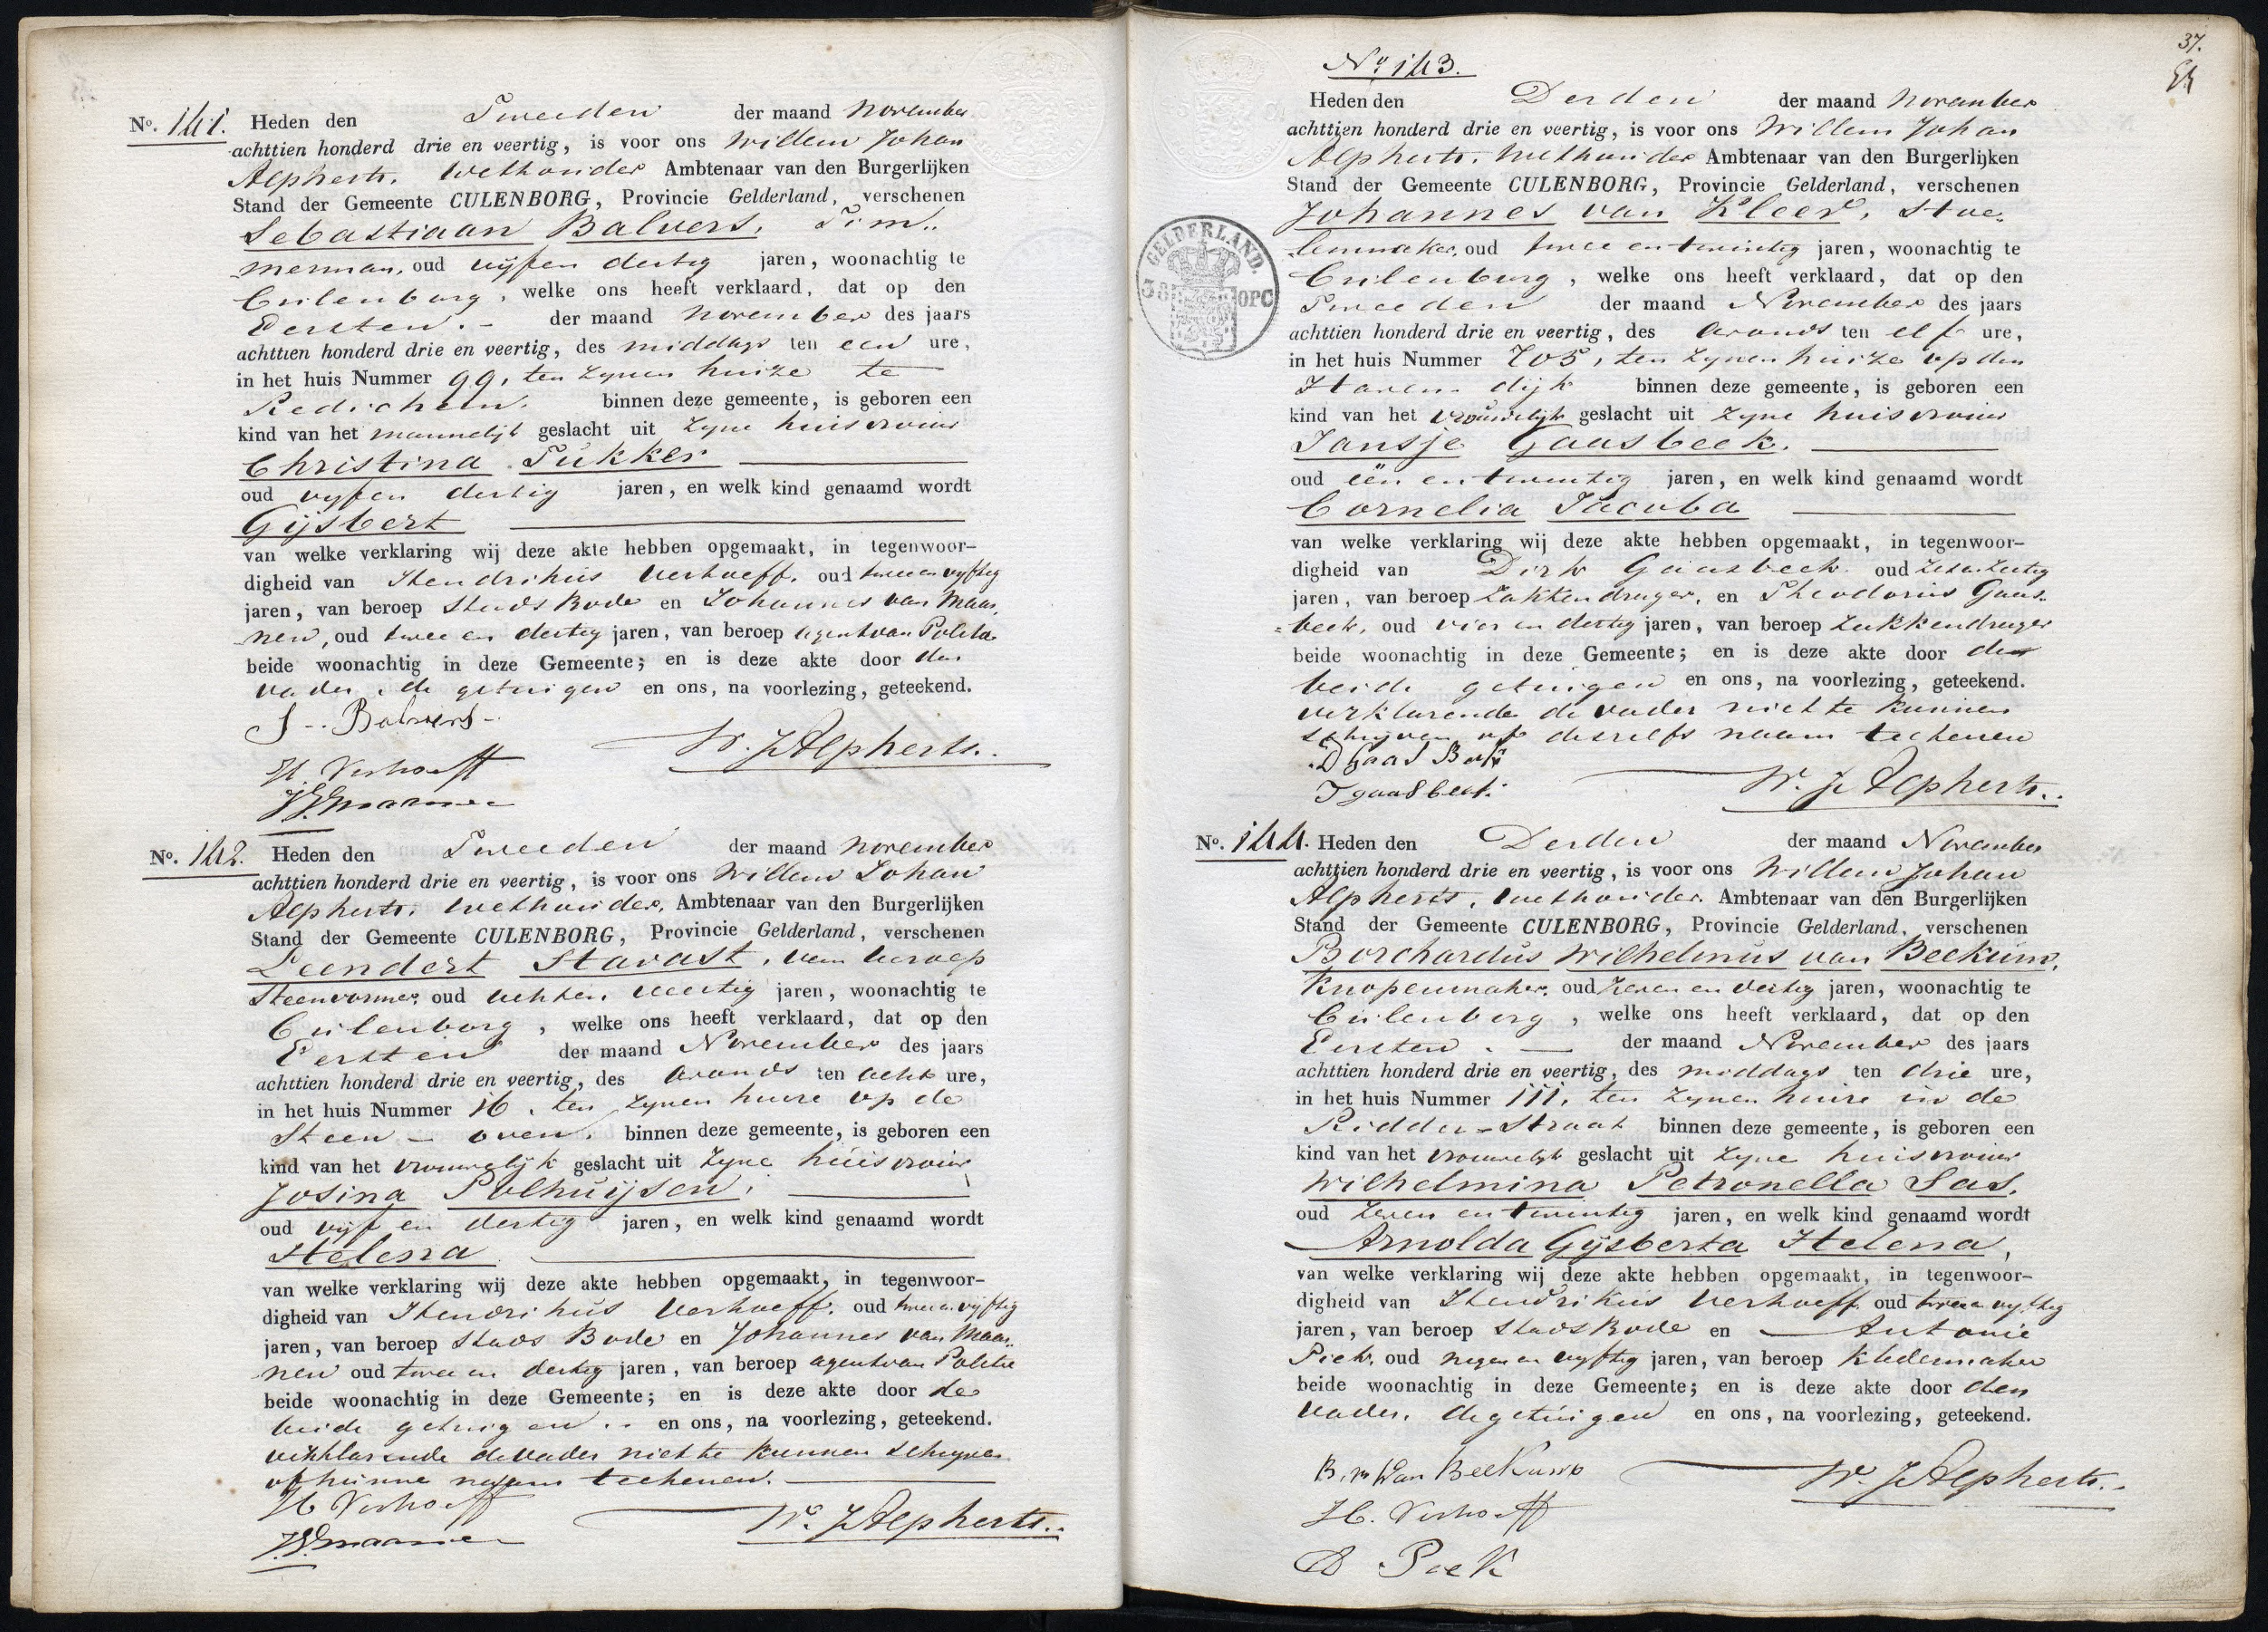 No. 141. Heden den Tweeden der maand November
achttien honderd drie en veertig, is voor ons Willem Johan
Alpherts, Wethouder Ambtenaar van den Burgerlijken
Stand der Gemeente CULENBORG, Provincie Gelderland, verschenen
Sebastiaan Balvers, Tim..
merman, oud vijf en dertig jaren, woonachtig te
Cuilenborg, welke ons heeft verklaard, dat op den
Eersten.- der maand November des jaars
achttien honderd drie en veertig, des middags ten een ure,
in het huis Nummer 99, ten zynen huize te
Redichem. binnen deze gemeente, is geboren een
kind van het mannelijk geslacht uit zyne huisvrouw
Christina Tukker
oud vyf en dertig jaren, en welk kind genaamd wordt
Gijsbert
van welke verklaring wij deze akte hebben opgemaakt, in tegenwoor-
digheid van Hendrikus Verhoeff, oud twee en vyftig
jaren, van beroep Stads Bode en Johannes van Maar,
nen, oud twee en dertig jaren, van beroep agent van Politie
beide woonachtig in deze Gemeente; en is deze akte door den
vader, de getuigen en ons, na voorlezing, geteekend.
S-. Balvers-
W. J Alpherts..
H. Verhoeff
No. 142. Heden den Tweeden der maand November
achttien honderd drie en veertig, is voor ons Willem Johan
Alpherts, Wethouder, Ambtenaar van den Burgerlijken
Stand der Gemeente CULENBORG, Provincie Gelderland, verschenen
Leendert Stavast, van beroep
Steenvormer, oud acht en veertig jaren, woonachtig te
Cuilenborg, welke ons heeft verklaard, dat op den
Eersten der maand November des jaars
achttien honderd drie en veertig, des avonds ten acht ure,
in het huis Nummer 16, ten zynen huize op de
Steen - oven, binnen deze gemeente, is geboren een
kind van het vrouwelijk geslacht uit zyne huisvrouw
Josina Polhuijsen,
oud vijf en dertig jaren, en welk kind genaamd wordt
Helena
van welke verklaring wij deze akte hebben opgemaakt, in tegenwoor-
digheid van Hendrikus Verhoeff, oud twee en vijftig
jaren, van beroep Stads Bode en Johannes van Maar..
nen oud twee en dertig jaren, van beroep agent van Politie
beide woonachtig in deze Gemeente; en is deze akte door de
beide getuigen .. en ons, na voorlezing, geteekend.
verklarende de vader niet te kunnen schryven
of hunne naam teekenen.
H Verhoeff
W. J Alpherts..
37.
No 143.
Heden den Derden der maand November
achttien honderd drie en veertig, is voor ons Willem Johan
Alpherts, Wethouder Ambtenaar van den Burgerlijken
Stand der Gemeente CULENBORG, Provincie Gelderland, verschenen
Johannes van Kleef, Stoe-
lenmaker, oud twee en twintig jaren, woonachtig te
Cuilenborg, welke ons heeft verklaard, dat op den
Tweeden der maand November des jaars
achttien honderd drie en veertig, des avonds ten elf ure,
in het huis Nummer 705, ten zynen huize op den
Haven dijk binnen deze gemeente, is geboren een
kind van het vrouwelijk geslacht uit zyne huisvrouw
Jansje Gaasbeek.
oud één en twintig jaren, en welk kind genaamd wordt
Cornelia Jacoba
van welke verklaring wij deze akte hebben opgemaakt, in tegenwoor-
digheid van Dirk Gaasbeek oud zes en zestig
jaren, van beroep Zakkendrager, en Theodorus Gaas-
=beek, oud vier en dertig jaren, van beroep Zakkendrager
beide woonachtig in deze Gemeente; en is deze akte door de
beide getuigen en ons, na voorlezing, geteekend.
verklarende de vader niet te kunnen
schryven of deszelfs naam teekenen
D Gaas Beek
T gaasbeek
W. J Alpherts..
GELDERLAND.
OPC
No. 144. Heden den Derden der maand November
achttien honderd drie en veertig, is voor ons Willem Johan
Alpherts, Wethouder. Ambtenaar van den Burgerlijken
Stand der Gemeente CULENBORG, Provincie Gelderland, verschenen
Borchardus Wilhelmus van Beekum,
Knopenmaker, oud zeven en dertig jaren, woonachtig te
Cuilenborg, welke ons heeft verklaard, dat op den
Eersten. - der maand November des jaars
achttien honderd drie en veertig, des middags ten drie ure,
in het huis Nummer 111, ten zynen huize in de
Ridder-Straat binnen deze gemeente, is geboren een
kind van het vrouwelyk geslacht uit zyne huisvrouw
Wilhelmina Petronella Sas,
oud zeven en twintig jaren, en welk kind genaamd wordt
Arnolda Gijsberta Helena,
van welke verklaring wij deze akte hebben opgemaakt, in tegenwoor-
digheid van Hendrikus Verhoeff oud twee en vyftig
jaren, van beroep Stads Bode en Antonie
Piek, oud negen en vyftig jaren, van beroep Kledermaker
beide woonachtig in deze Gemeente; en is deze akte door den
vader, de getuigen en ons, na voorlezing, geteekend.
B. W Van Beekum
W. J Alpherts..
H. Verhoeff
A Piek